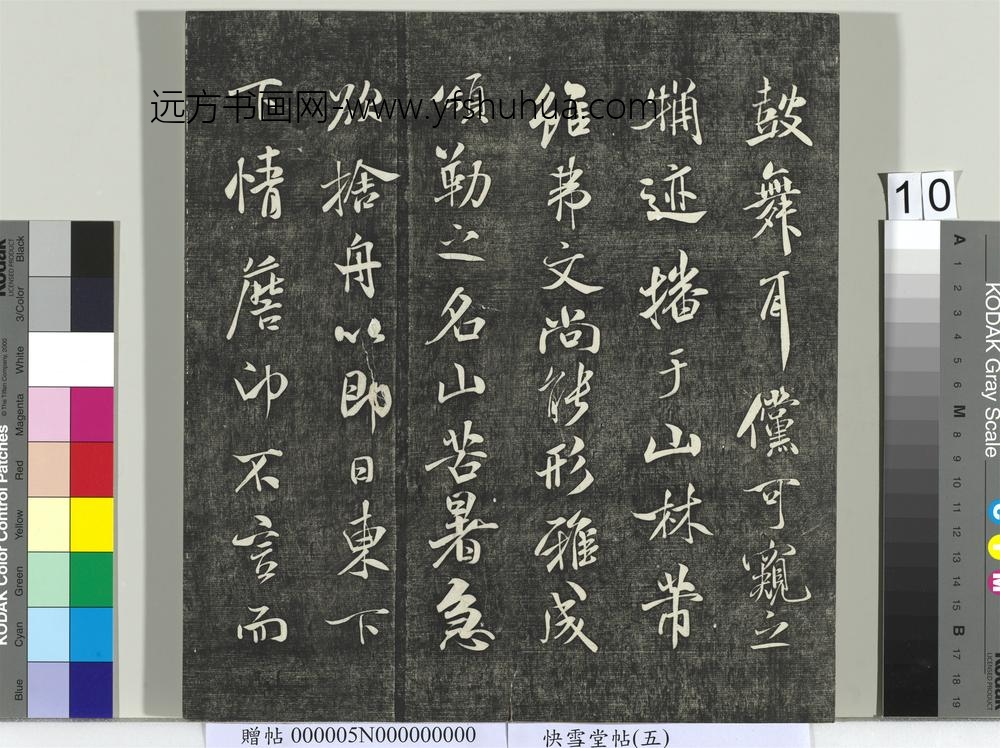 鼓舞耳儻可窺之
迹播于山林芾
雖弗文尚能形雅成
頌勒之名山苦暑急
欲捨舟以即日東下
下情詹卬不言而
远方书画网-www.yfshuhua.com
10
贈帖 000005N000000000
快雪堂帖(五)
KODAK Color Control Patches
© The Tiffen Company, 2000
Kodak
LICENSED PRODUCT
Blue
Cyan
Green
Yellow
Red
Magenta
White
3/Color
Black
KODAK Gray Scale
A 1 2 3 4 5 6 M 8 9 10 11 12 13 14 15 B 17 18 19
C
Y
M
Kodak
LICENSED PRODUCT